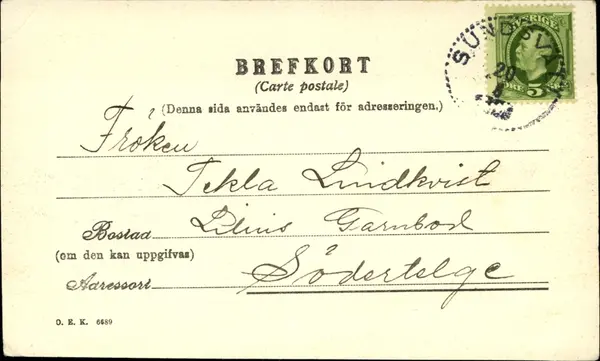 BREFKORT
(Carte postale)
(Denna sida användes endast för adresseringen.)
SUNDSVALL
20
SVERIGE
5
ÖRE
Fröken
Tekla Lindkvist
Bostad
Garnbod
(om den kan uppgifvas)
Adressort
Södertelge
O. E. K. 6489